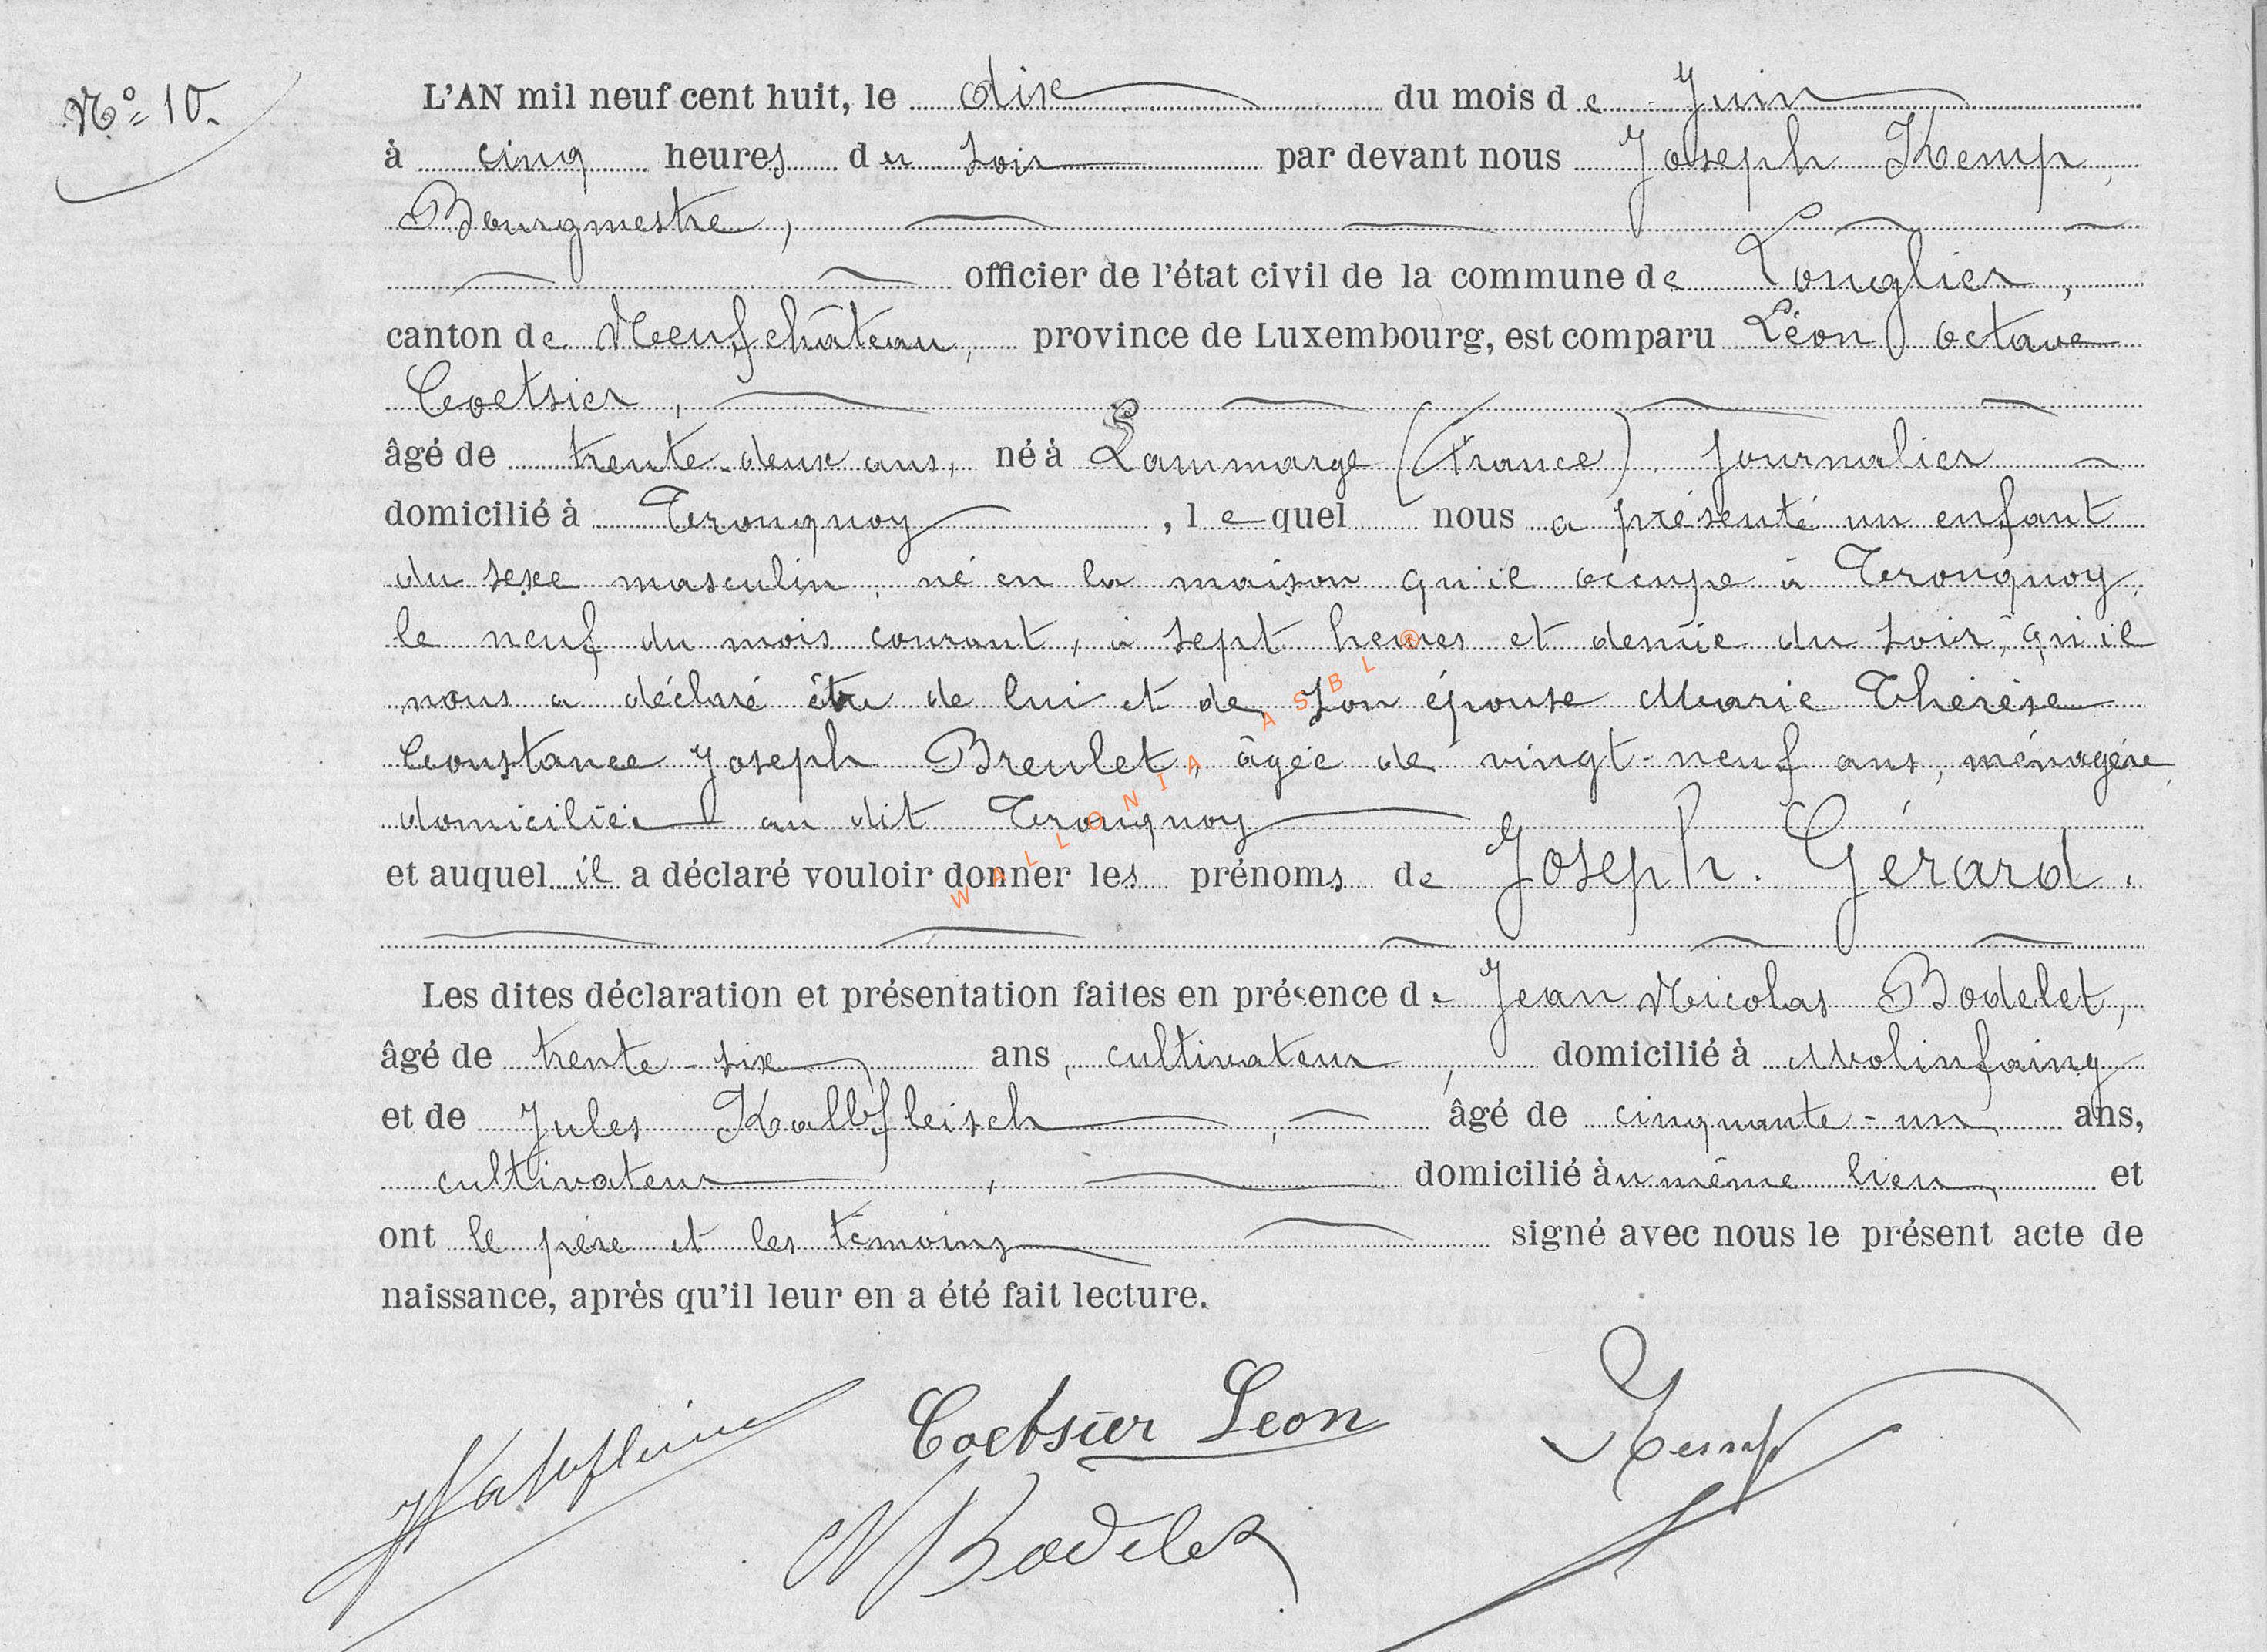 N° 10.
L'AN mil neuf cent huit, le dix du mois de Juin
à cinq heures du soir par devant nous Joseph Kemp,
Bourgmestre,
officier de l'état civil de la commune de Longlier,
canton de Neufchâteau, province de Luxembourg, est comparu Léon Octave
Coetsier,
âgé de trente-deux ans, né à Lammarge (France), journalier
domicilié à Tronquoy, lequel nous a présenté un enfant
du sexe masculin, né en la maison qu'il occupe à Tronquoy,
le neuf du mois courant, à sept heures et demie du soir, qu'il
nous a déclaré être de lui et de son épouse Marie Thérèse
Constance Joseph Breulet, âgée de vingt-neuf ans, ménagère,
domiciliée au dit Tronquoy
et auquel il a déclaré vouloir donner les prénoms de Joseph. Gérard.
Les dites déclaration et présentation faites en présence de Jean Nicolas Bodelet,
âgé de trente-six ans, cultivateur, domicilié à Molinfaing
et de Jules Kalbfleisch, âgé de cinquante-un ans,
cultivateur, domicilié au même lieu, et
ont le père et les témoins signé avec nous le présent acte de
naissance, après qu'il leur en a été fait lecture.
WALLONIA ASBL ®
Coetsier Leon
Kemp
N Bodelet